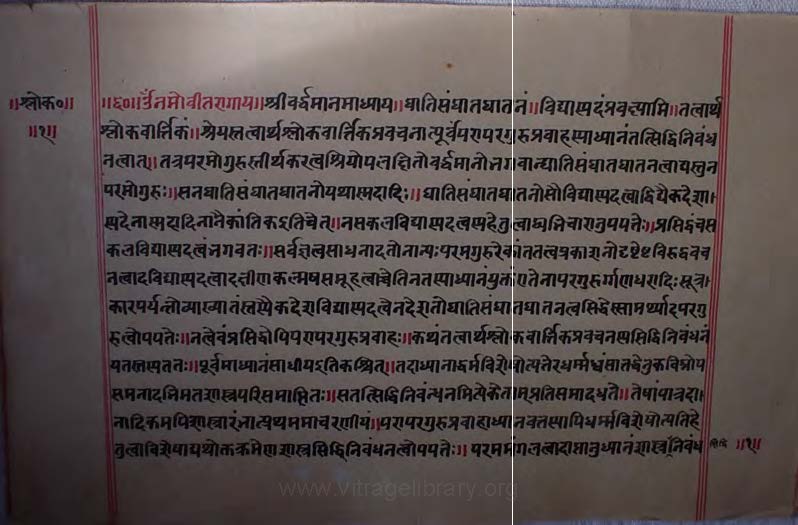 ॥श्लोक०॥
॥१॥
॥६०॥ उँनमोवीतरागाय॥श्रीवर्द्धमानमाध्याय॥घातिसंघातघातनं॥विद्यास्पदंप्रवक्ष्यामि॥तत्वार्थ
श्लोकवार्त्तिकं॥श्रेयस्तत्वार्थश्लोकवार्त्तिकप्रवचनात्पूर्वंपरापरगुरुप्रवाहस्याध्यानंतत्सिद्धिनिबंध
नत्वात्॥तत्रपरमोगुरुस्तीर्थकरत्वश्रियोपलक्षितोवर्द्धमानोभगवान्घातिसंघातघातनत्वाद्यस्तुन
परमोगुरुः॥सनघातिसंघातघातनोयथास्मदादिः॥घातिसंघातघातनोसौविद्यास्पदत्वाद्विद्यैकदेशा।
स्पदेनास्मदादिनानैकांतिकइतिचेत्॥नसकलविद्यास्पदत्वस्यहेतुत्वाद्यभिचारानुपपत्तेः॥प्रसिद्धंचस
कलविद्यास्पदत्वंभगवतः॥सर्वज्ञत्वसाधनादतोनान्यःपरमगुरुरेकांततत्वप्रकाशनोदृष्टेष्टविरुद्धवच
नत्वादविद्यास्पदत्वादक्षीणकल्मषसमूहत्वाच्चेतिनतस्याध्यानंयुक्तंएतेनापरगुरुर्गणधरादिःसूत्रा।
कारपर्यन्तोव्याख्यातस्तस्यैकदेशविद्यास्पदत्वेनदेशतोघातिसंघातघातनत्वसिद्धेस्सामर्थ्यादपरगु
रुत्वोपपत्तेः॥नत्वेवंप्रसिद्धोपिपरापरगुरुप्रवाहः॥कथंतत्वार्थश्लोकवार्त्तिकप्रवचनस्यसिद्धिनिबंधनं
यतस्तस्यततः॥पूर्वमाध्यानंसाधीयइतिकश्चित्॥तदाध्यानाद्धर्मविशेषोत्पत्तेरधर्म्मध्वंसात्तद्धेतुकविघ्नोप
शमनादभिमतशास्त्रपरिसमाप्तितः॥सतत्सिद्धिनिबंन्धनमित्येकेतान्प्रतिसमादधते॥तेषांपात्रदा।
नादिकमपिशास्त्रारंभात्प्रथममाचरणीयं॥परापरगुरुप्रवाहाध्यानवत्तस्यापिधर्म्मविशेषोत्पत्तिहे
तुत्वाविशेषाद्यथोक्तक्रमेणशास्त्रसिद्धिनिबंधनत्वोपपत्तेः॥परममंगलत्वादाप्तानुध्यानंशास्त्रनिबंध
॥१॥
www.vitragelibrary.org